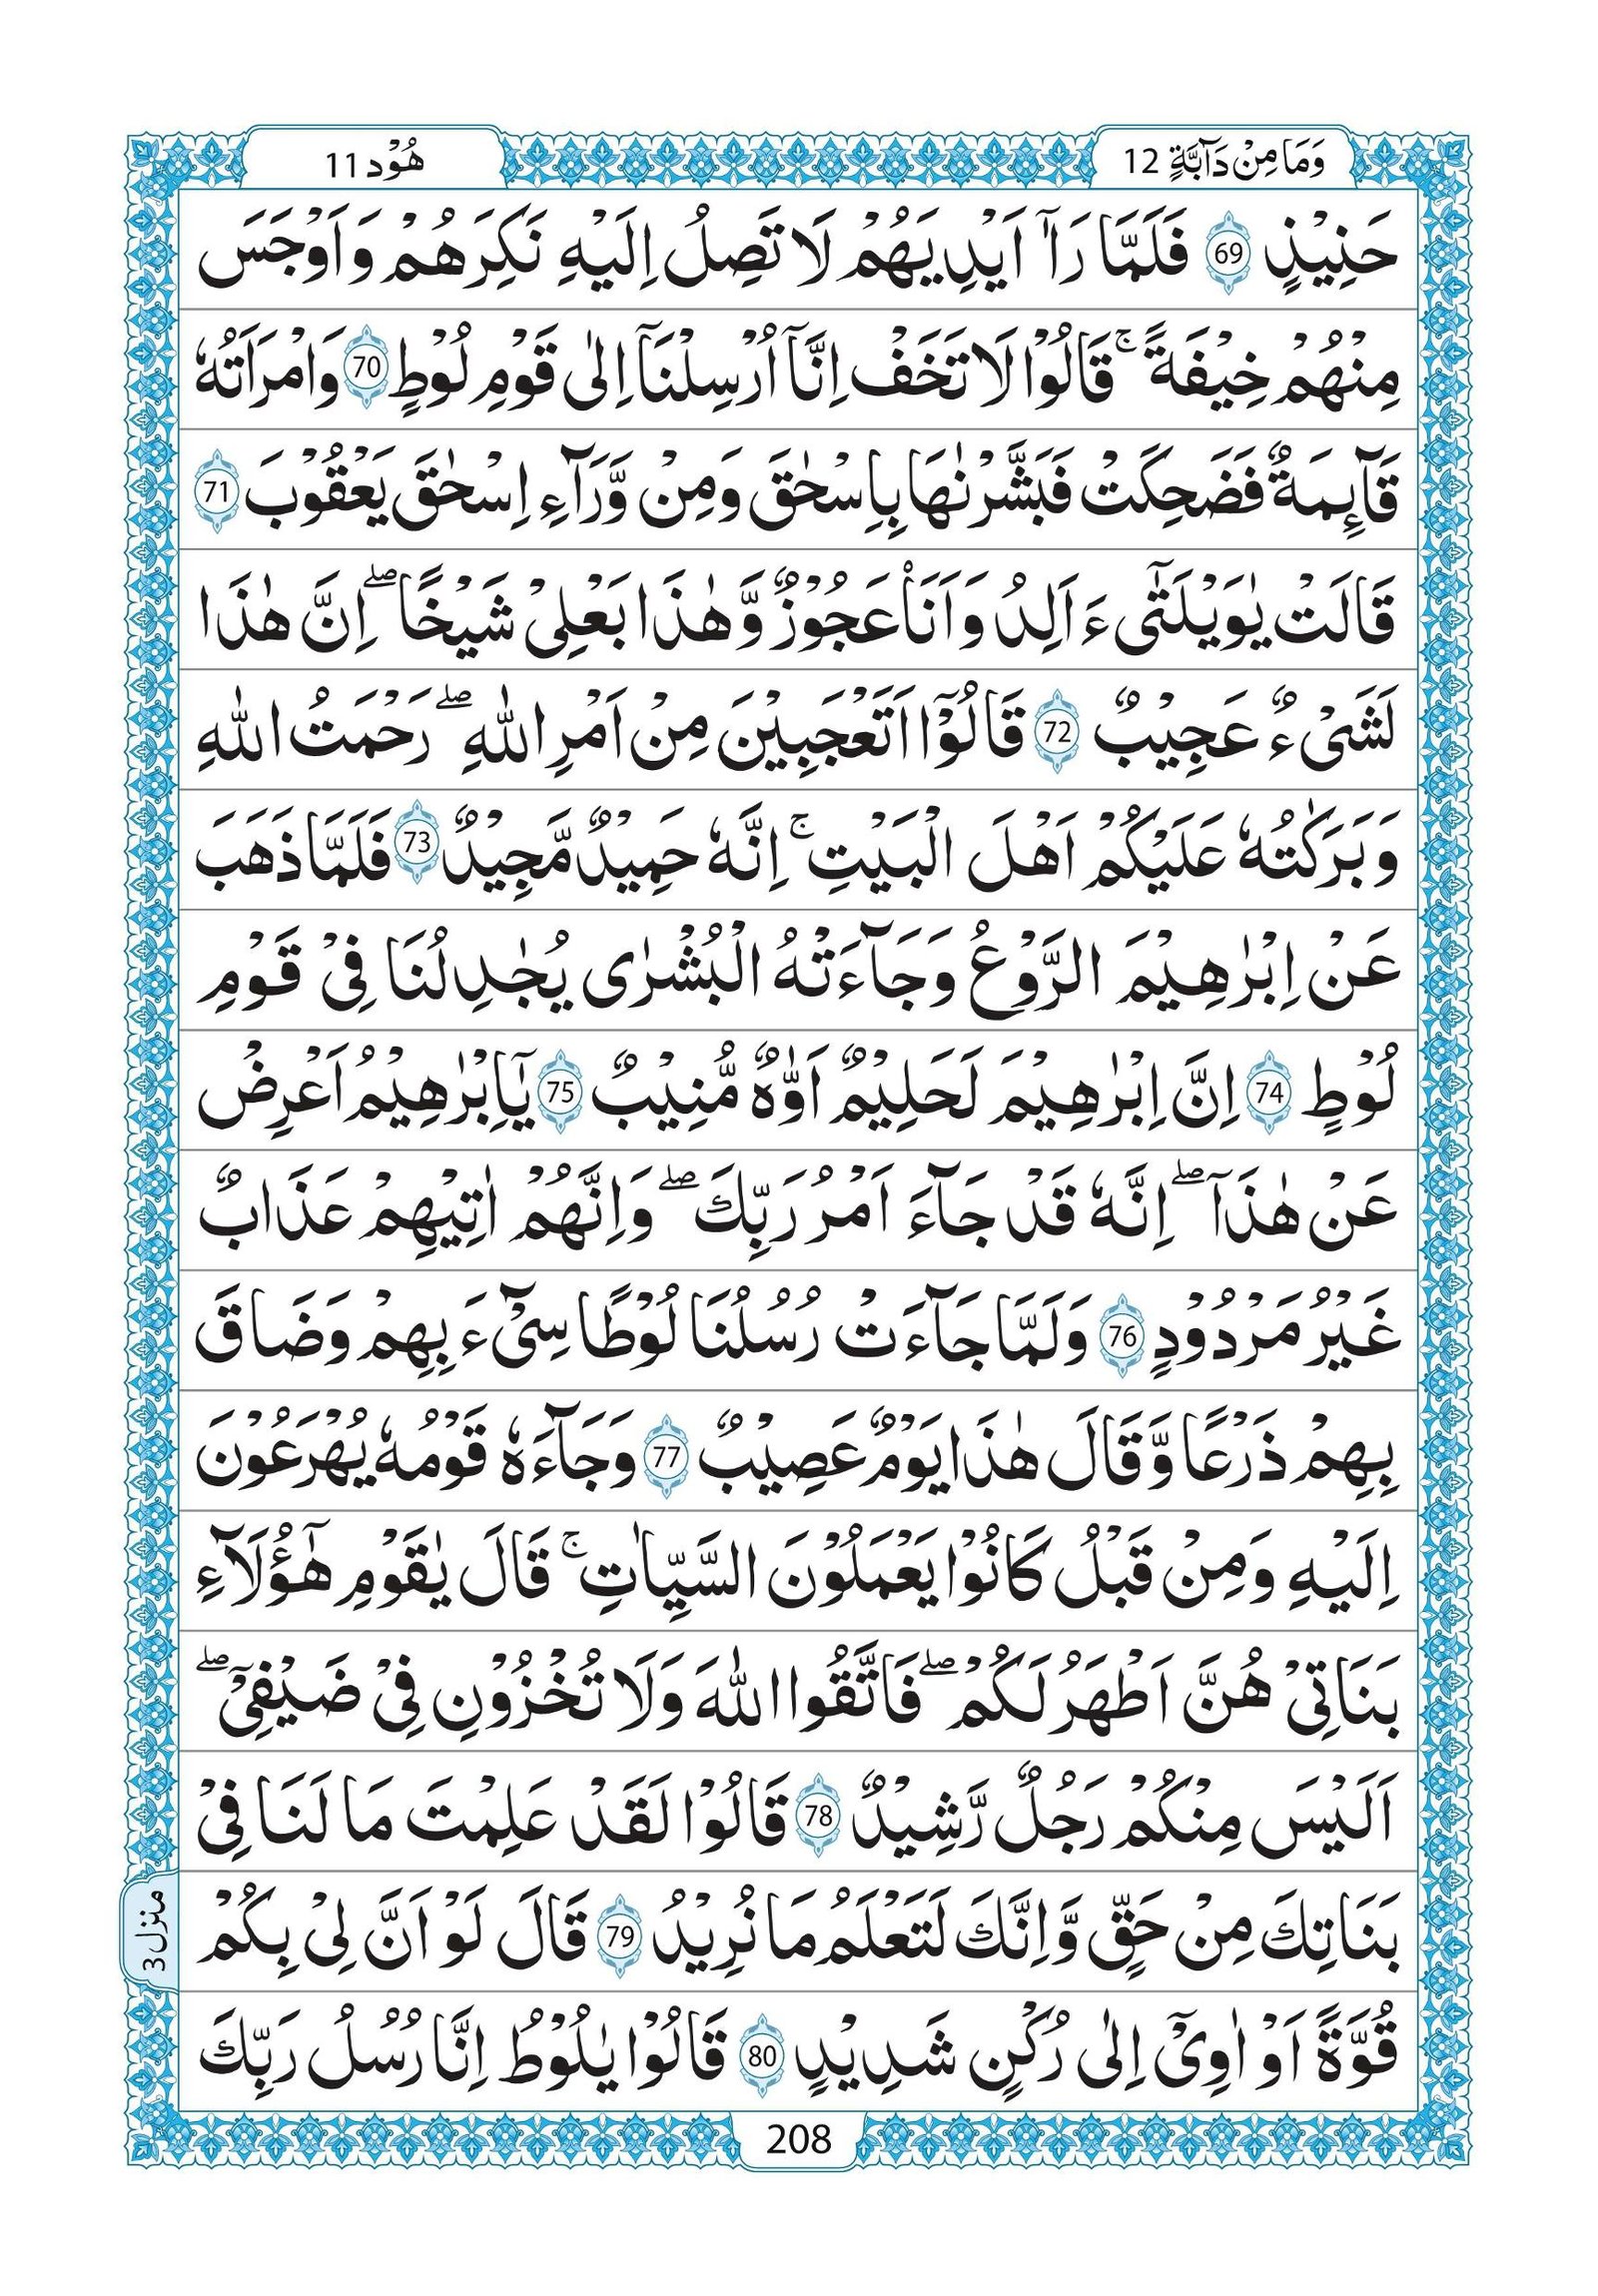 وَمَا مِنْ دَآبَّةٍ 12
هُوْد 11
حَنِيْذٍ 69 فَلَمَّا رَاٰۤ اَيْدِيَهُمْ لَا تَصِلُ اِلَيْهِ نَكِرَهُمْ وَاَوْجَسَ
مِنْهُمْ خِيْفَةً ۚ قَالُوْا لَا تَخَفْ اِنَّاۤ اُرْسِلْنَاۤ اِلٰى قَوْمِ لُوْطٍ 70 وَامْرَاَتُهٗ
قَآئِمَةٌ فَضَحِكَتْ فَبَشَّرْنٰهَا بِاِسْحٰقَ وَمِنْ وَّرَآءِ اِسْحٰقَ يَعْقُوْبَ 71
قَالَتْ يٰوَيْلَتٰٓى ءَاَلِدُ وَاَنَا۠ عَجُوْزٌ وَّهٰذَا بَعْلِىْ شَيْخًا ۖ اِنَّ هٰذَا
لَشَىْءٌ عَجِيْبٌ 72 قَالُوْۤا اَتَعْجَبِيْنَ مِنْ اَمْرِ اللّٰهِ ۖ رَحْمَتُ اللّٰهِ
وَبَرَكٰتُهٗ عَلَيْكُمْ اَهْلَ الْبَيْتِ ۚ اِنَّهٗ حَمِيْدٌ مَّجِيْدٌ 73 فَلَمَّا ذَهَبَ
عَنْ اِبْرٰهِيْمَ الرَّوْعُ وَجَآءَتْهُ الْبُشْرٰى يُجٰدِلُنَا فِىْ قَوْمِ
لُوْطٍ 74 اِنَّ اِبْرٰهِيْمَ لَحَلِيْمٌ اَوَّاهٌ مُّنِيْبٌ 75 يٰۤاِبْرٰهِيْمُ اَعْرِضْ
عَنْ هٰذَاۤ ۖ اِنَّهٗ قَدْ جَآءَ اَمْرُ رَبِّكَ ۖ وَاِنَّهُمْ اٰتِيْهِمْ عَذَابٌ
غَيْرُ مَرْدُوْدٍ 76 وَلَمَّا جَآءَتْ رُسُلُنَا لُوْطًا سِىْٓءَ بِهِمْ وَضَاقَ
بِهِمْ ذَرْعًا وَّقَالَ هٰذَا يَوْمٌ عَصِيْبٌ 77 وَجَآءَهٗ قَوْمُهٗ يُهْرَعُوْنَ
اِلَيْهِ وَمِنْ قَبْلُ كَانُوْا يَعْمَلُوْنَ السَّيِّاٰتِ ۚ قَالَ يٰقَوْمِ هٰٓؤُلَآءِ
بَنَاتِىْ هُنَّ اَطْهَرُ لَكُمْ ۖ فَاتَّقُوا اللّٰهَ وَلَا تُخْزُوْنِ فِىْ ضَيْفِىْۤ ۖ
اَلَيْسَ مِنْكُمْ رَجُلٌ رَّشِيْدٌ 78 قَالُوْا لَقَدْ عَلِمْتَ مَا لَنَا فِىْ
بَنَاتِكَ مِنْ حَقٍّ وَّاِنَّكَ لَتَعْلَمُ مَا نُرِيْدُ 79 قَالَ لَوْ اَنَّ لِىْ بِكُمْ
قُوَّةً اَوْ اٰوِىْۤ اِلٰى رُكْنٍ شَدِيْدٍ 80 قَالُوْا يٰلُوْطُ اِنَّا رُسُلُ رَبِّكَ
منزل 3
208